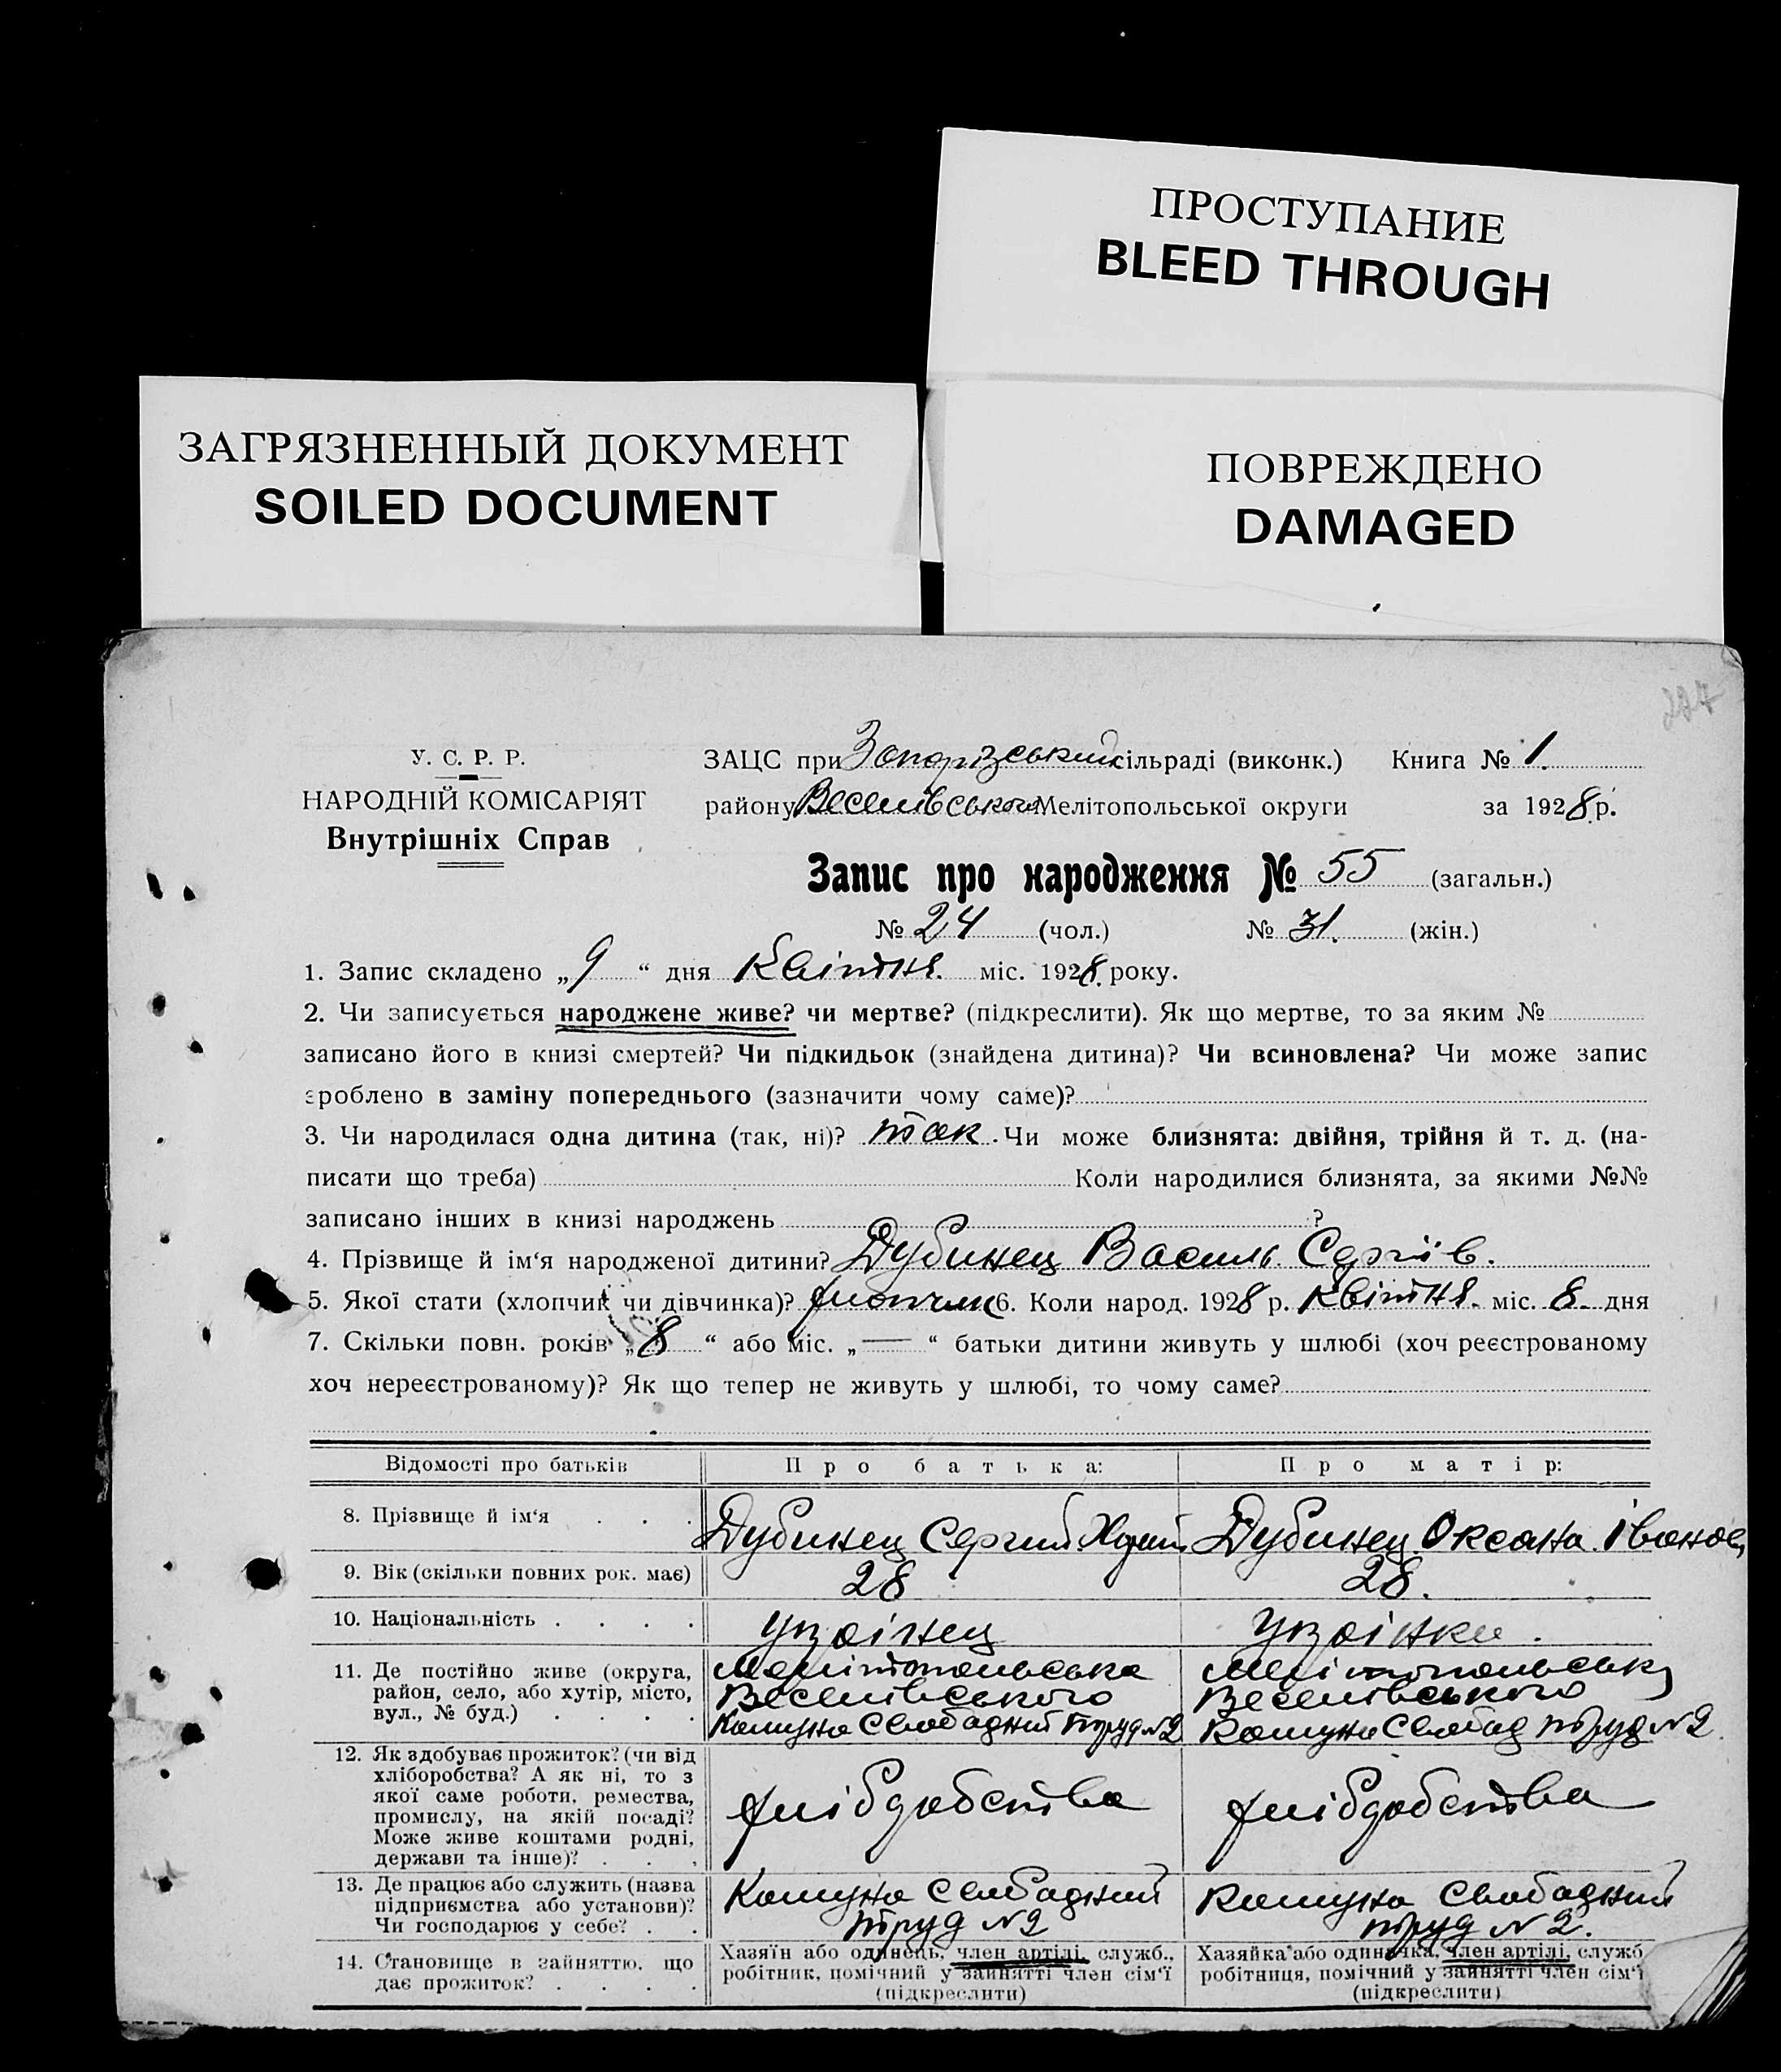 ПРОСТУПАНИЕ
BLEED THROUGH
ЗАГРЯЗНЕННЫЙ ДОКУМЕНТ
SOILED DOCUMENT
ПОВРЕЖДЕНО
DAMAGED
227
У. С. Р. Р.
НАРОДНІЙ КОМІСАРІЯТ
Внутрішніх Справ
ЗАЦС при Запорізській сільраді (виконк.) Книга № 1.
району Веселівського Мелітопольської округи за 1928 р.
Запис про народження № 55 (загальн.)
№ 24 (чол.) № 31. (жін.)
1. Запис складено „9“ дня Квітня. міс. 1928. року.
2. Чи записується народжене живе? чи мертве? (підкреслити). Як що мертве, то за яким №
записано його в книзі смертей? Чи підкидьок (знайдена дитина)? Чи всиновлена? Чи може запис
зроблено в заміну попереднього (зазначити чому саме)?
3. Чи народилася одна дитина (так, ні)? так. Чи може близнята: двійня, трійня й т. д. (на-
писати що треба) Коли народилися близнята, за якими №№
записано інших в книзі народжень ?
4. Прізвище й ім‘я народженої дитини? Дубинец Василь Сергіїв.
5. Якої стати (хлопчик чи дівчинка)? хлопчик 6. Коли народ. 1928 р. Квітня. міс. 8. дня
7. Скільки повн. років „8“ або міс. „—“ батьки дитини живуть у шлюбі (хоч реєстрованому
хоч нереєстрованому)? Як що тепер не живуть у шлюбі, то чому саме?
Відомості про батьків Про батька: Про матір:
8. Прізвище й ім‘я . . . Дубинец Сергий Дубинец Оксана Іванов
9. Вік (скільки повних рок. має) 28 28.
10. Національність . . . . українец українка.
11. Де постійно живе (округа, Мелітопольська Мелітопольськ
район, село, або хутір, місто, Веселівського Веселівського
вул., № буд.) . . . . Комуна Свобадний труд №2 Комуна Свобад труд №2
12. Як здобуває прожиток? (чи від
хліборобства? А як ні, то з
якої саме роботи, ремества,
промислу, на якій посаді? хлібробства хлібробства
Може живе коштами родні,
держави та інше)? . . .
13. Де працює або служить (назва Комуна Свобадний Комуна Свобадний
підприємства або установи)? труд №2 труд №2.
Чи господарює у себе? . .
14. Становище в зайняттю, що Хазяїн або одинець, член артілі, служб., Хазяйка або одиначка, член артілі, служб
дає прожиток? . . . . робітник, помічний у зайнятті член сім‘ї робітниця, помічний у зайнятті член сім‘ї
(підкреслити) (підкреслити)